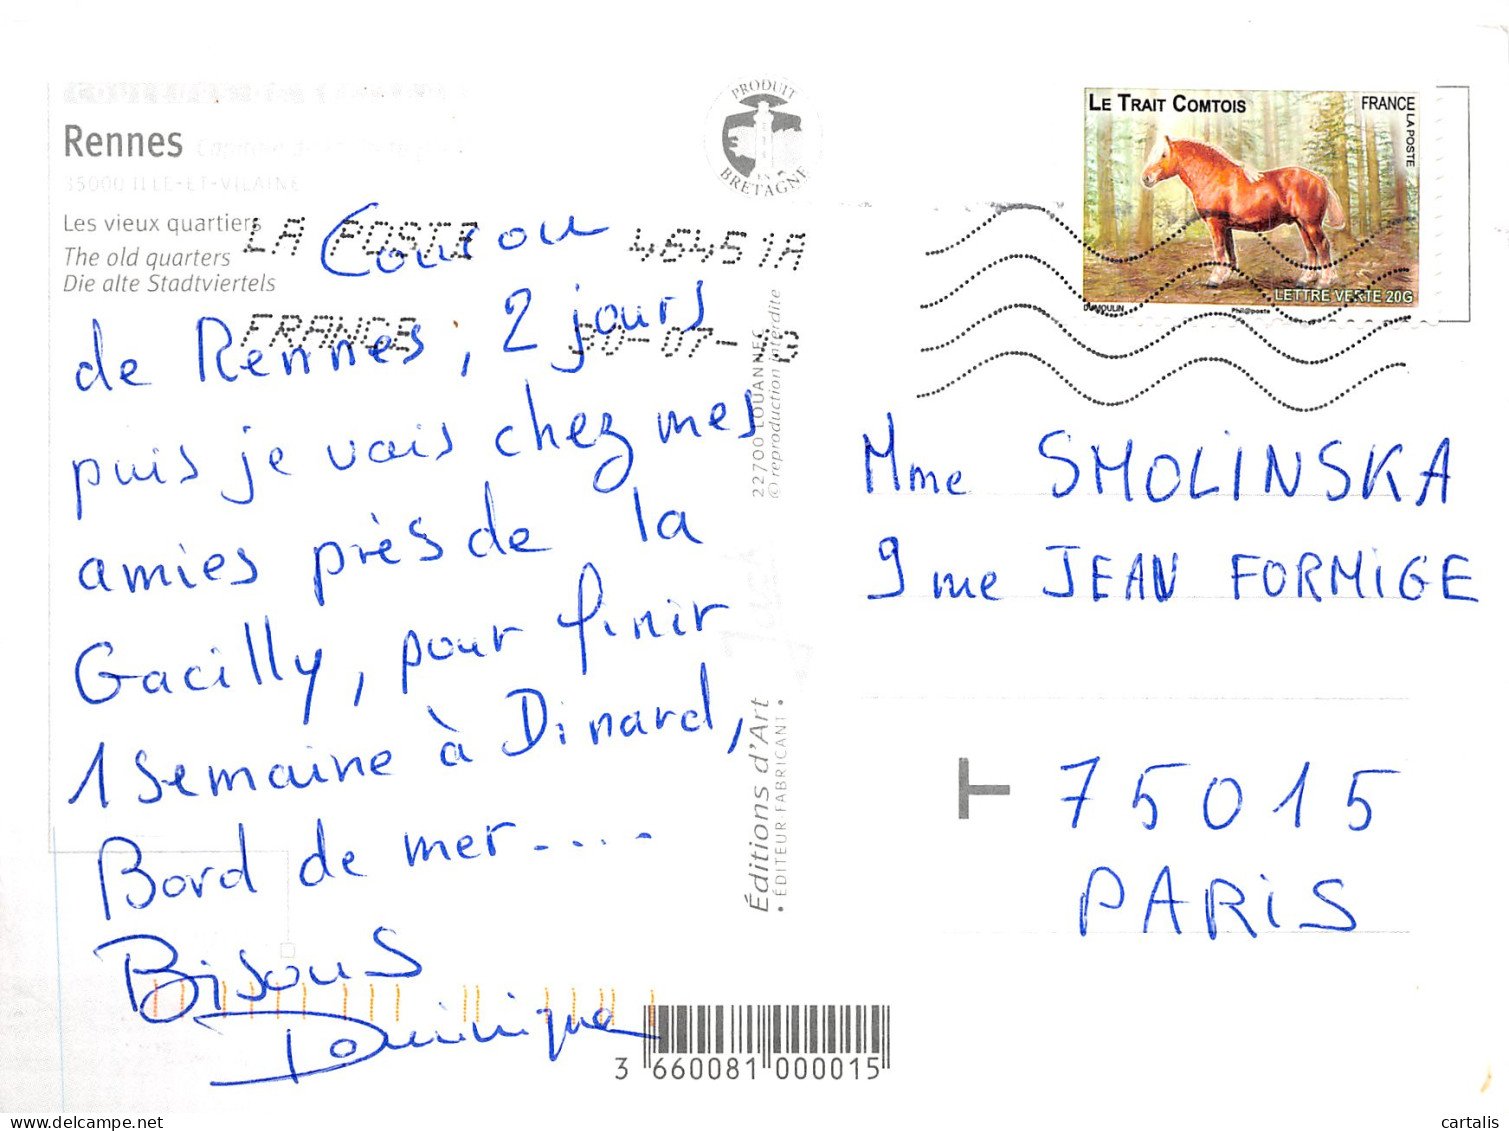 Rennes
35000 ILLE-ET-VILAINE
Les vieux quartiers
The old quarters
Die alte Stadtviertels
PRODUIT
EN
BRETAGNE
LE TRAIT COMTOIS
FRANCE
LA POSTE
DUMOULIN
Phil@poste
LETTRE VERTE 20G
LA POSTE 46451A
FRANCE
Coucou
de Rennes, 2 jours
puis je vais chez mes
amies près de la
Gacilly, pour finir
1 semaine à Dinard,
Bord de mer....
Bisous
Dominique
22700 LOUANNEC
© reproduction interdite
Éditions d'Art
• ÉDITEUR-FABRICANT •
Mme SMOLINSKA
9 me JEAN FORMIGE
T
75015
PARIS
3 660081 000015
cartalis